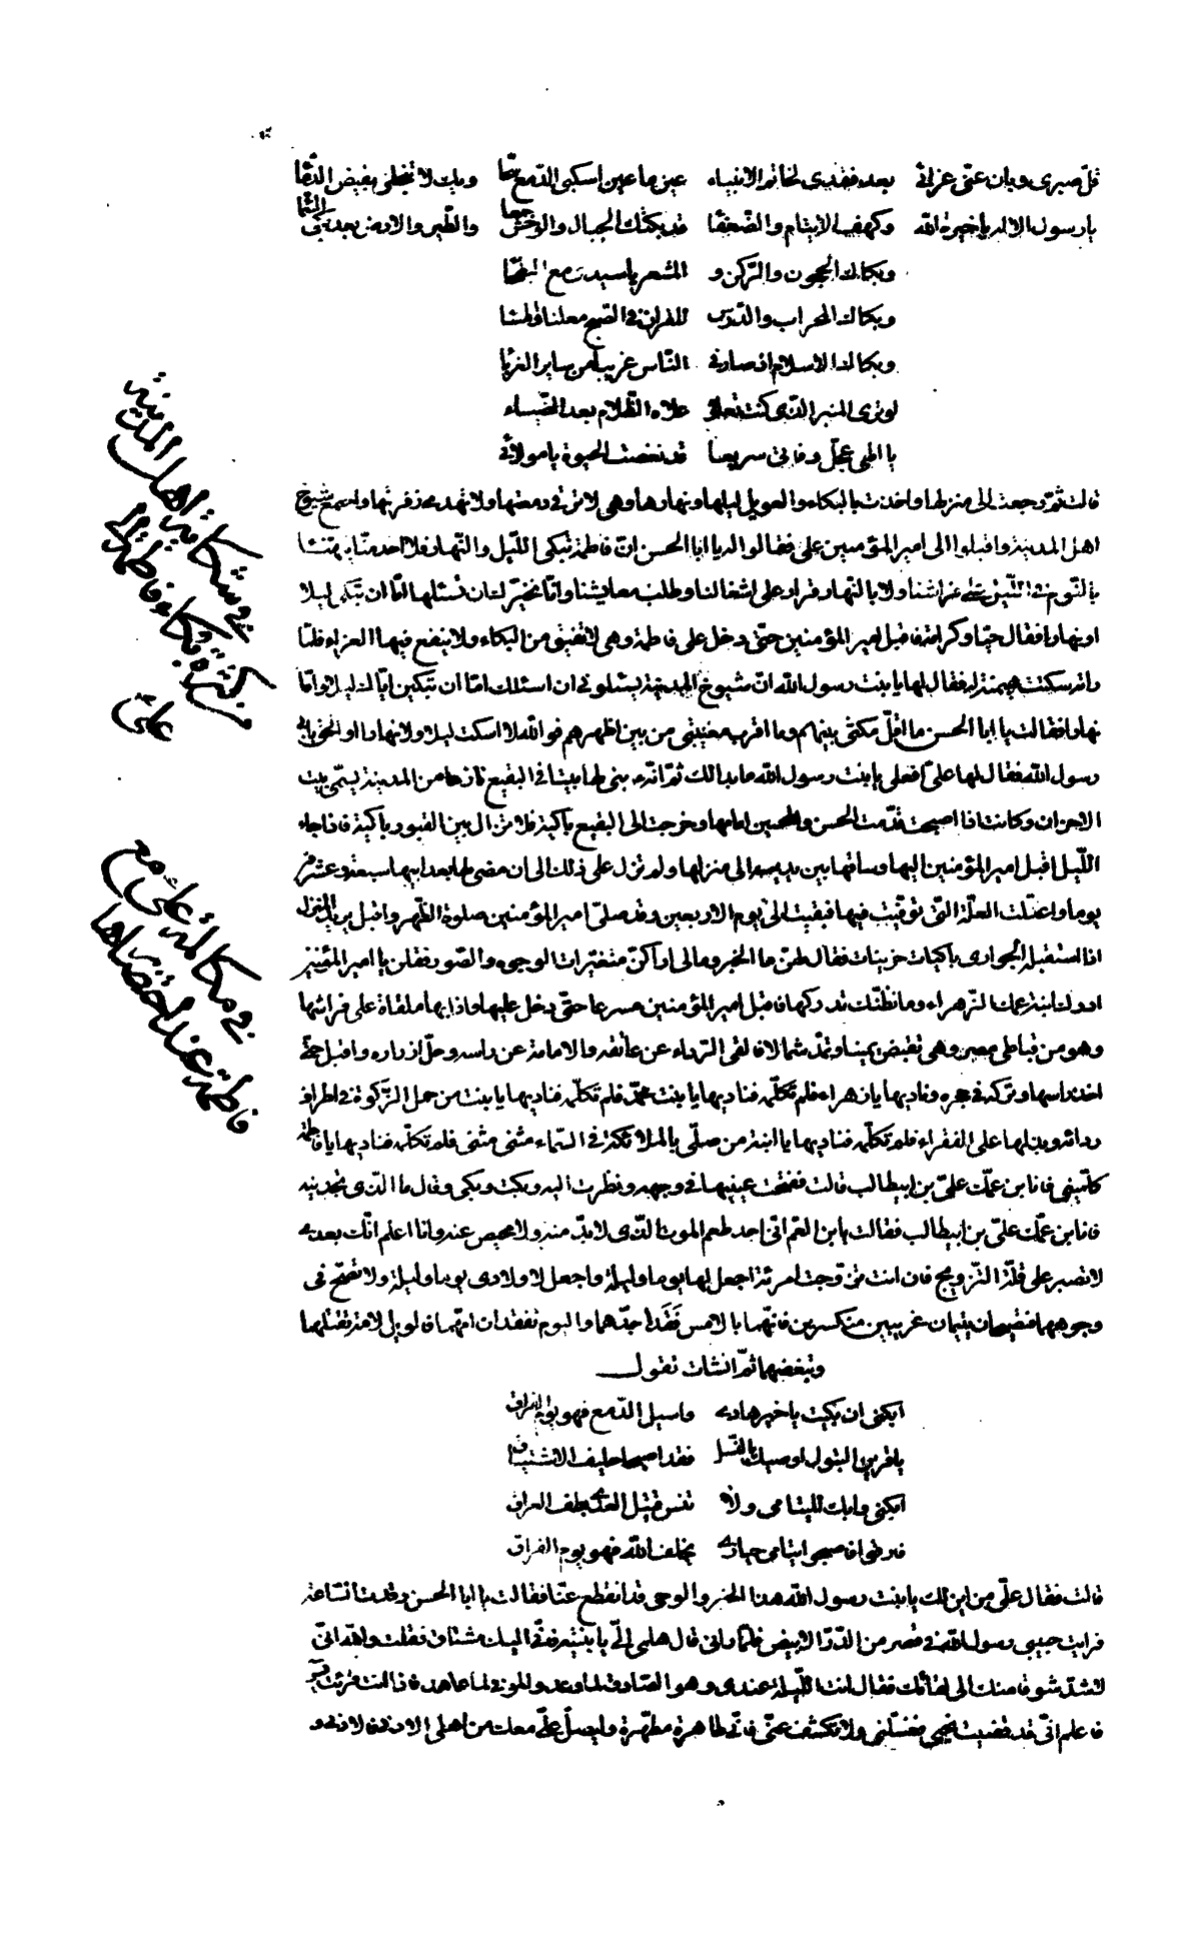 قلّ صبری و بان عنّی عزائی بعد فقدی لخاتم الانبیاء عین یا عین اسکبی الدّمع سحّا ویک لا تبخلی بفیض الدّما
یا رسول الاله یا خیرة الله و کهف الایتام والضّعفا قد بکتک الجبال والوحش جمعا والطّیر والارض بعد بکی السّما
وبکاک الحجون والرّکن و المشعر یا سیدی مع البطحا
وبکاک المحراب والدّرس للقران فی الصّبح معلنا والمسا
وبکاک الاسلام اذ صار فی النّاس غریبا من سایر الغربا
لو تری المنبر الذی کنت تعلوه علاه الظّلام بعد الضّیاء
یا الهی عجّل وفاتی سریعا قد نغصت الحیوة یا مولائی
قالت ثمّ رجعت الی منزلها واخذت بالبکاء والعویل لیلها ونهارها وهی لا ترقی دمعتها ولا تهدی زفرتها واجتمع شیوخ
اهل المدینة واقبلوا الی امیر المؤمنین علی فقالوا له یا ابا الحسن انّ فاطمة تبکی اللّیل والنّهار فلا احد منّا یهنئا
بالنّوم فی اللّیل علی فراشنا ولا بالنّهار قرار علی اشغالنا وطلب معایشنا وانّا نخبّرک ان تسئلها امّا ان تبکی لیلا
او نهارا فقال حبّا وکرامة فاقبل امیر المؤمنین حتّی دخل علی فاطمة وهی لا تفیق من البکاء ولا ینفع فیها العزاء فلمّا
راته سکنت هنیئة له فقال لها یا بنت رسول الله انّ شیوخ المدینة یسئلونی ان اسئلک امّا ان تبکین اباک لیلا وامّا
نهارا فقالت یا ابا الحسن ما اقلّ مکثی بینهم وما اقرب مغیبی من بین اظهرهم فوالله لا اسکت لیلا ولا نهارا او الحق بابی
رسول الله فقال لها علیّ افعلی یا بنت رسول الله ما بدا لک ثمّ انّه بنی لها بیتا فی البقیع نازحا من المدینة یسمّی بیت
الاحزان وکانت اذا اصبحت قدّمت الحسن والحسین امامها وخرجت الی البقیع باکیة فلا تزال بین القبور باکیة فاذا جاء
اللّیل اقبل امیر المؤمنین الیها وساقها بین یدیه الی منزلها ولم تزل علی ذلک الی ان مضی لها بعد ابیها سبعة وعشرون
یوما واعتلّت العلّة التی توفّیت فیها فبقیت الی یوم الاربعین وقد صلّی امیر المؤمنین صلوة الظّهر واقبل یرید المنزل
اذا استقبلته الجواری باکیات حزینات فقال لهنّ ما الخبر وما لی اراکنّ متغیّرات الوجوه والصّور فقلن یا امیر المؤمنین
ادرک ابنة عمّک الزّهراء وما نظنّک تدرکها فاقبل امیر المؤمنین مسرعا حتّی دخل علیها واذا بها ملقاة علی فراشها
وهو من قباطی مصر وهی تقبض یمینا وتمدّ شمالا فالقی الرّداء عن عاتقه والعمامة عن راسه وحلّ ازراره واقبل حتّی
اخذ راسها وترکه فی حجره ونادیها یا زهراء فلم تکلّمه فنادیها یا بنت محمّد فلم تکلّمه فنادیها یا بنت من حمل الزّکوة فی اطراف
ردائه وبذلها علی الفقراء فلم تکلّمه فنادیها یا ابنة من صلّی بالملائکة فی السّماء مثنی مثنی فلم تکلّمه فنادیها یا فاطمة
کلّمینی فانا ابن عمّک علیّ بن ابیطالب قالت ففتحت عینیها فی وجهه ونظرت الیه وبکت وبکی وقال ما الذی تجدینه
فانا ابن عمّک علیّ بن ابیطالب فقالت یا بن العم انّی اجد طعم الموت الذی لا بدّ منه ولا محیص عنه وانا اعلم انّک بعدی
لا تصبر علی قلّة التّزویج فان انت تزوّجت امرئة اجعل لها یوما ولیلة واجعل لاولادی یوما ولیلة ولا تصحّ فی
وجوههما فیصبحان یتیمان غریبین منکسرین فانّهما بالامس فقدا جدّهما والیوم تفقدان امّهما فالویل لامّة تقتلهما
وتبغضهما ثمّ انشات تقول
ابکنی ان بکیت یا خیر هادی واسبل الدّمع فهو یوم الفراق
یا قرین البتول اوصیک بالنّسل فقد اصبحا حلیف الاشتیاق
ابکنی وابک للیتامی ولا تنس قتیل العدی بطف العراق
فارقوا فاصبحوا یتامی حیاری یخلف الله فهو یوم الفراق
قالت فقال علیّ من این لک یا بنت رسول الله هذا الخبر والوحی قد انقطع عنّا فقالت یا ابا الحسن رقدت السّاعة
فرایت حبیبی رسول الله فی قصر من الدّرّ الابیض فلمّا رانی قال هلمی الیّ یا بنیّة فانّی الیک مشتاق فقلت والله انّی
لاشدّ شوقا منک الی لقائک فقال انت اللّیلة عندی وهو الصّادق لما وعد والموفی لما عاهد فاذا انت قرئت یس
فاعلم انّی قد قضیت نحبی فغسّلنی ولا تکشف عنّی فانّی طاهرة مطهّرة ولیصلّ علیّ معک من اهلی الادنی فالادنی و
فی شکایة اهل المدینة
من کثرة بکاء فاطمة الی
علیّ
فی مکالمة علیّ مع
فاطمة عند احتضارها